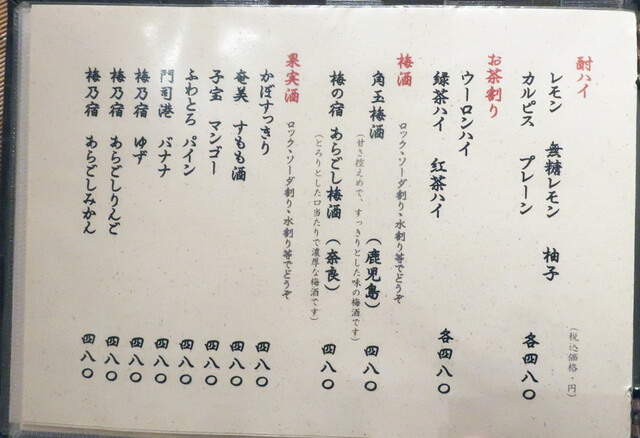 酎ハイ
レモン 無糖レモン 柚子
カルピス プレーン
(税込価格・円)
各四八〇
お茶割り
ウーロンハイ
緑茶ハイ 紅茶ハイ
各四八〇
梅酒
ロック、ソーダ割り、水割り等でどうぞ
角玉梅酒 (鹿児島) 四八〇
(甘さ控えめで、すっきりとした味の梅酒です)
梅の宿 あらごし梅酒 (奈良) 四八〇
(とろりとした口当たりで濃厚な梅酒です)
果実酒
ロック、ソーダ割り、水割り等でどうぞ
かぼすっきり 四八〇
奄美 すもも酒 四八〇
子宝 マンゴー 四八〇
ふわとろ パイン 四八〇
門司港 バナナ 四八〇
梅乃宿 ゆず 四八〇
梅乃宿 あらごしりんご 四八〇
梅乃宿 あらごしみかん 四八〇